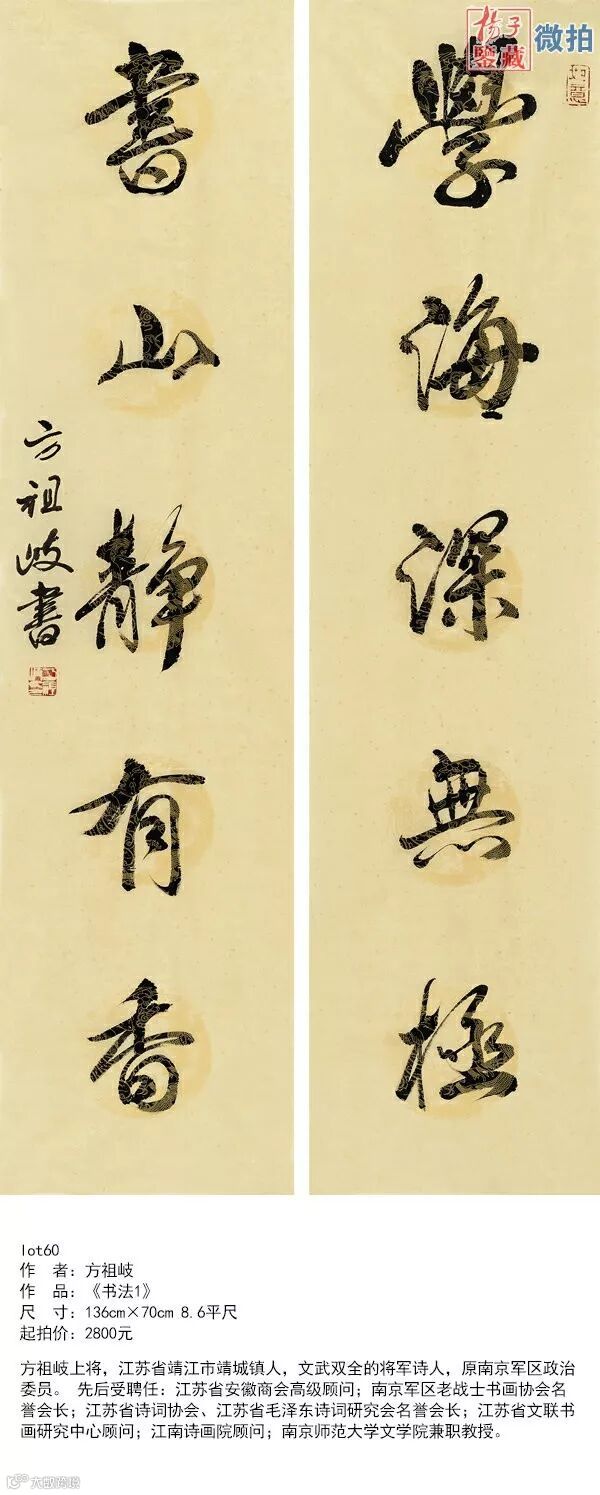 揚子
鑒藏
微拍
學海深無極
書山靜有香
方祖岐書
lot60
作 者：方祖岐
作 品：《书法1》
尺 寸：136cm×70cm 8.6平尺
起拍价：2800元
方祖岐上将，江苏省靖江市靖城镇人，文武双全的将军诗人，原南京军区政治
委员。 先后受聘任：江苏省安徽商会高级顾问；南京军区老战士书画协会名
誉会长；江苏省诗词协会、江苏省毛泽东诗词研究会名誉会长；江苏省文联书
画研究中心顾问；江南诗画院顾问；南京师范大学文学院兼职教授。